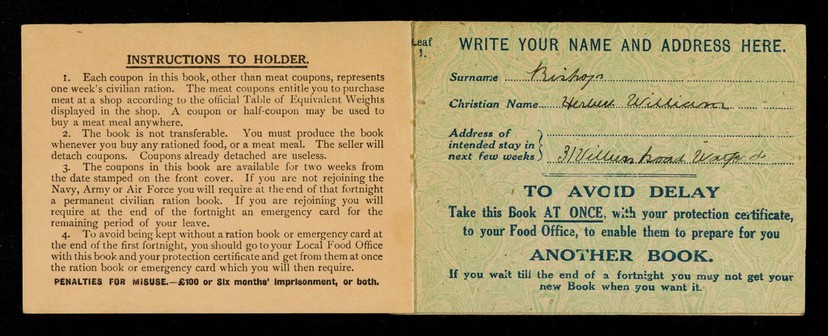 INSTRUCTIONS TO HOLDER.
1. Each coupon in this book, other than meat coupons, represents
one week's civilian ration. The meat coupons entitle you to purchase
meat at a shop according to the official Table of Equivalent Weights
displayed in the shop. A coupon or half-coupon may be used to
buy a meat meal anywhere.
2. The book is not transferable. You must produce the book
whenever you buy any rationed food, or a meat meal. The seller will
detach coupons. Coupons already detached are useless.
3. The coupons in this book are available for two weeks from
the date stamped on the front cover. If you are not rejoining the
Navy, Army or Air Force you will require at the end of that fortnight
a permanent civilian ration book. If you are rejoining you will
require at the end of the fortnight an emergency card for the
remaining period of your leave.
4. To avoid being kept without a ration book or emergency card at
the end of the first fortnight, you should go to your Local Food Office
with this book and your protection certificate and get from them at once
the ration book or emergency card which you will then require.
PENALTIES FOR MISUSE.—£100 or Six months' imprisonment, or both.
Leaf
1.
WRITE YOUR NAME AND ADDRESS HERE.
Surname Bishop
Christian Name Herbert William
Address of
intended stay in
next few weeks } 31 Villiers Road Watford
TO AVOID DELAY
Take this Book AT ONCE, with your protection certificate,
to your Food Office, to enable them to prepare for you
ANOTHER BOOK.
If you wait till the end of a fortnight you may not get your
new Book when you want it.